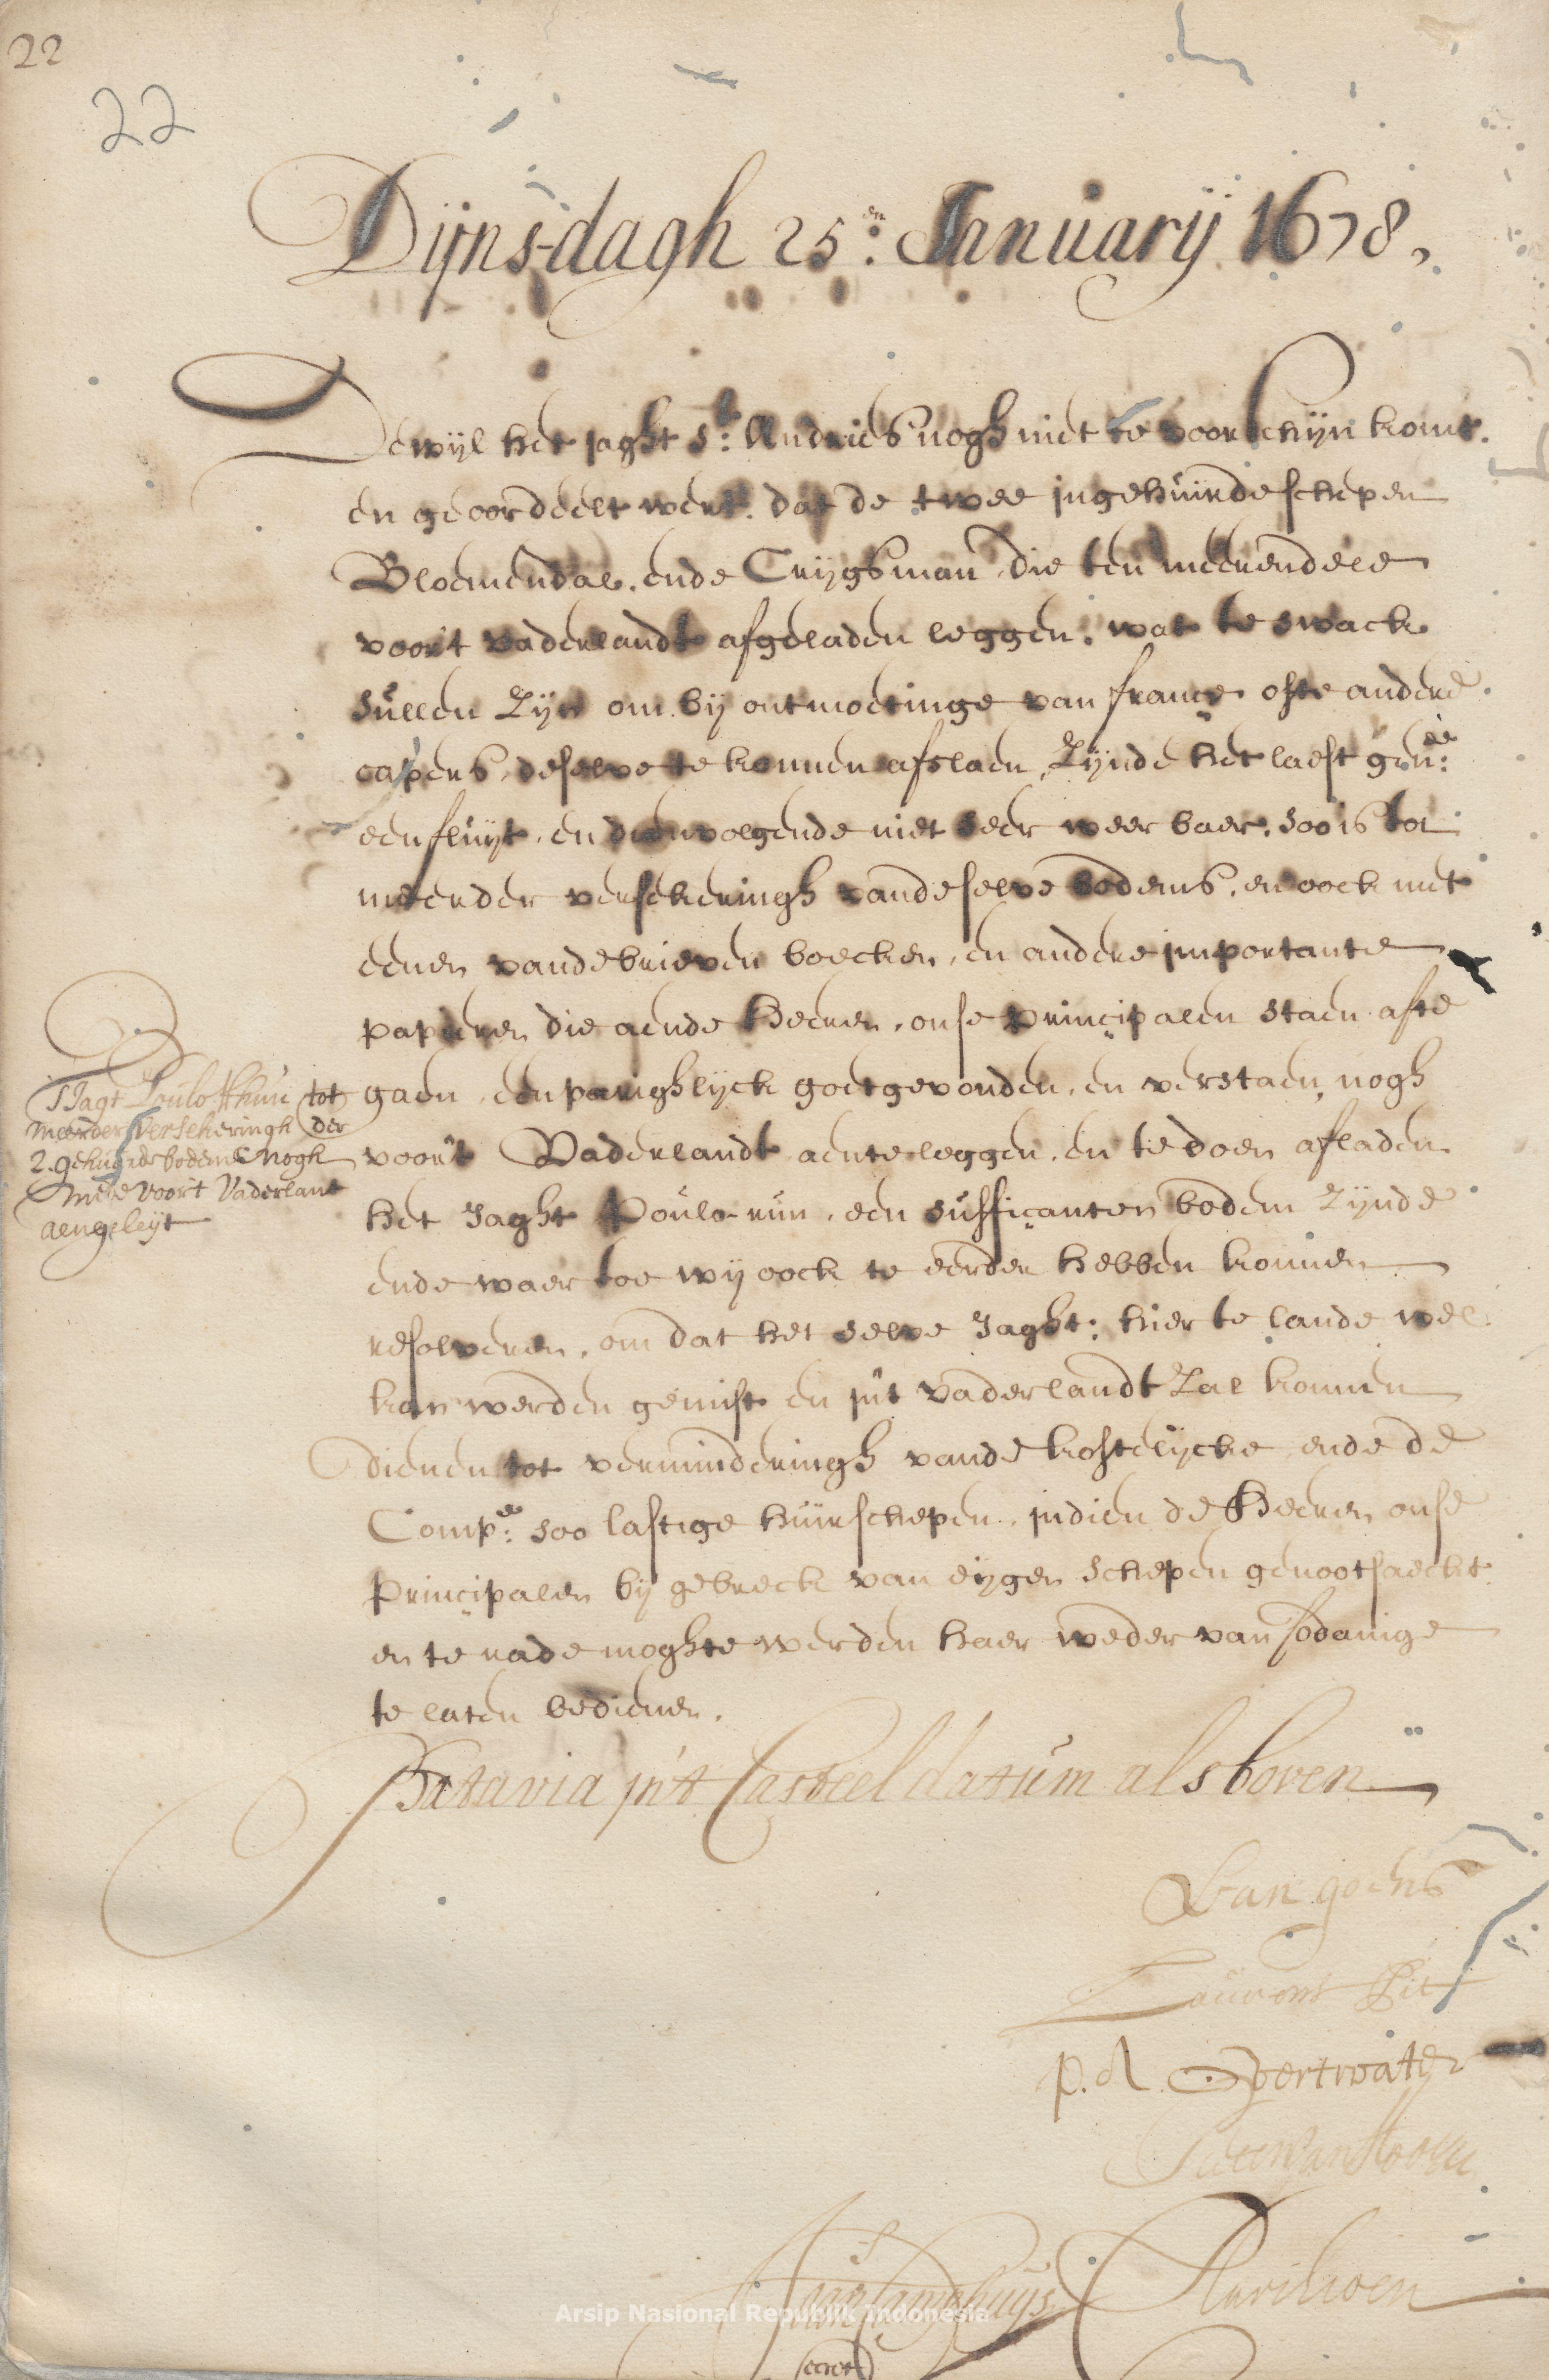 22
22
Dijnsdagh 25:en Januarij 1678,
Dewijl het jaght St: Andries nogh niet te voorschijn komt.
en geoordeelt wert. dat de twee ingehuirde schepen
Bloemendal. ende Crijgsman, die ten meerendele
voor't vaderlandt afgeladen leggen, wat te swack
sullen zijn om bij ontmoetinge van france ofte andere
capers, deselve te konnen afslaen, zijnde het laest gen:de
een fluijt, en dienvolgende niet seer weerbaer, soo is tot
meerder versekeringh vandeselve bodems, en oock met
eenen vande brieven boecken, en andere importante
papieren die aende Heeren, onse principalen staen afte
gaen, eenparighlijck goetgevonden, en verstaen, nogh
voor't Vaderlandt aenteleggen, en te doen afladen
het Jaght Poulo-run, een sufficanten bodem zijnde
ende waer toe wij oock te eerder hebben konnen
resolveren, om dat het selve Jaght: hier te lande wel
kan werden gemist en in't vaderlandt zal konnen
dienen tot verminderingh vande kostelijcke ende de
Comp:e soo lastige huirschepen, indien de Heeren onse
Principalen bij gebreck van eijgen schepen genootsaeckt
en te rade moghte werden haer weder van sodanige
te laten bedienen.
't Jagt Poulo Rhun tot
meerder versekeringh der
2. gehuurde bodems nogh
mede voor't Vaderlant
aengeleijt
Batavia in't Casteel datum als boven
Van goens
Laurens Pit
P. A. Overtwater
Pieter van Hoorn
Marville
secret
Arsip Nasional Republik Indonesia